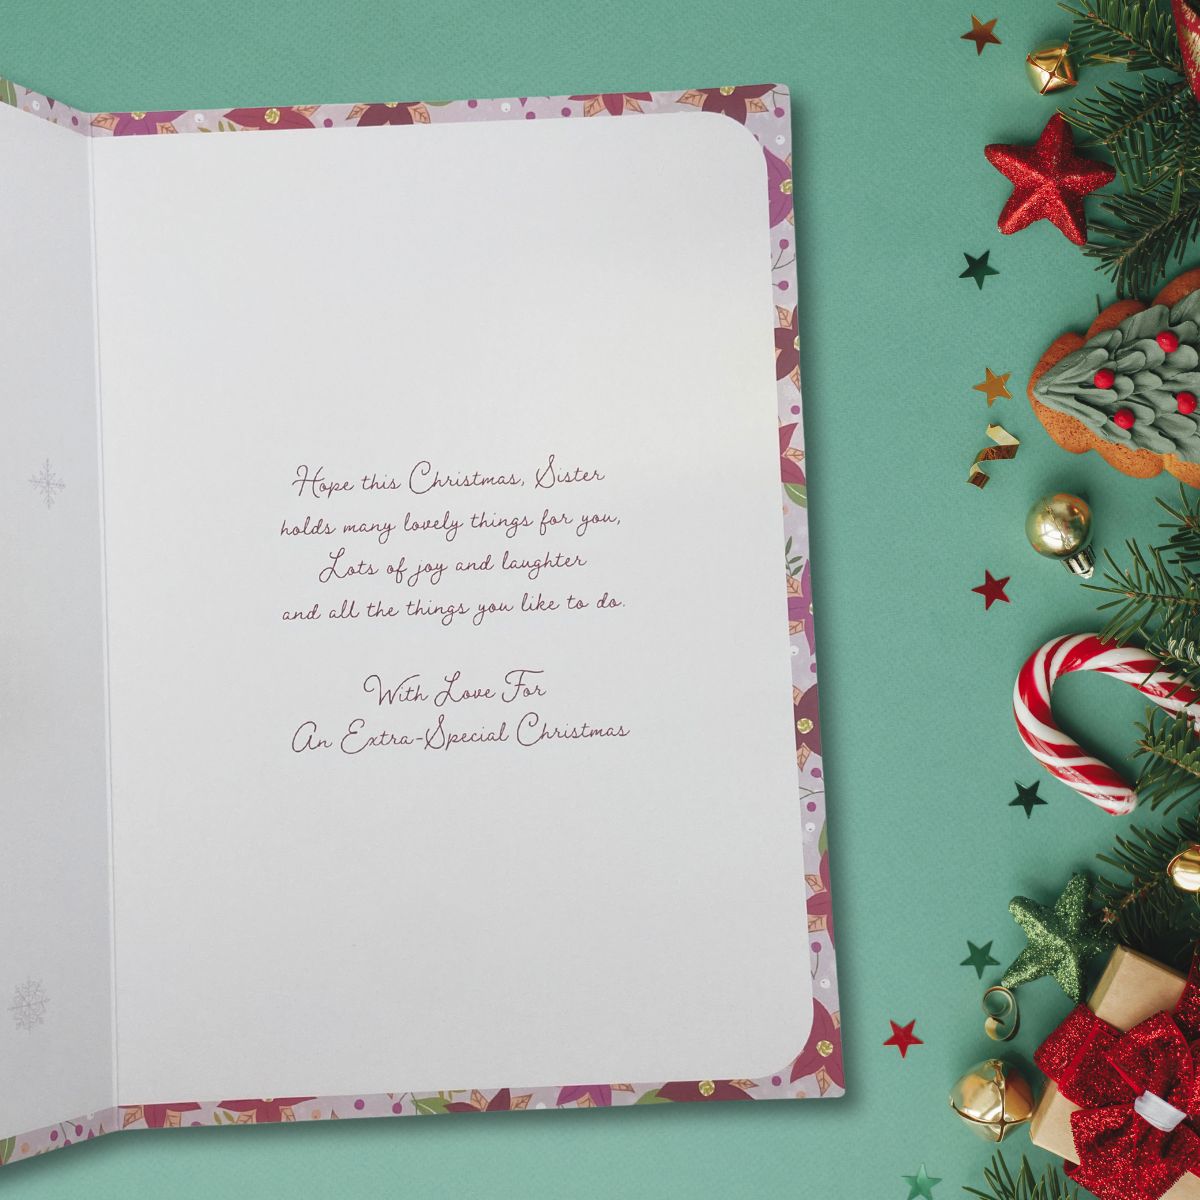 Hope this Christmas, Sister
holds many lovely things for you,
Lots of joy and laughter
and all the things you like to do.
With Love For
An Extra-Special Christmas